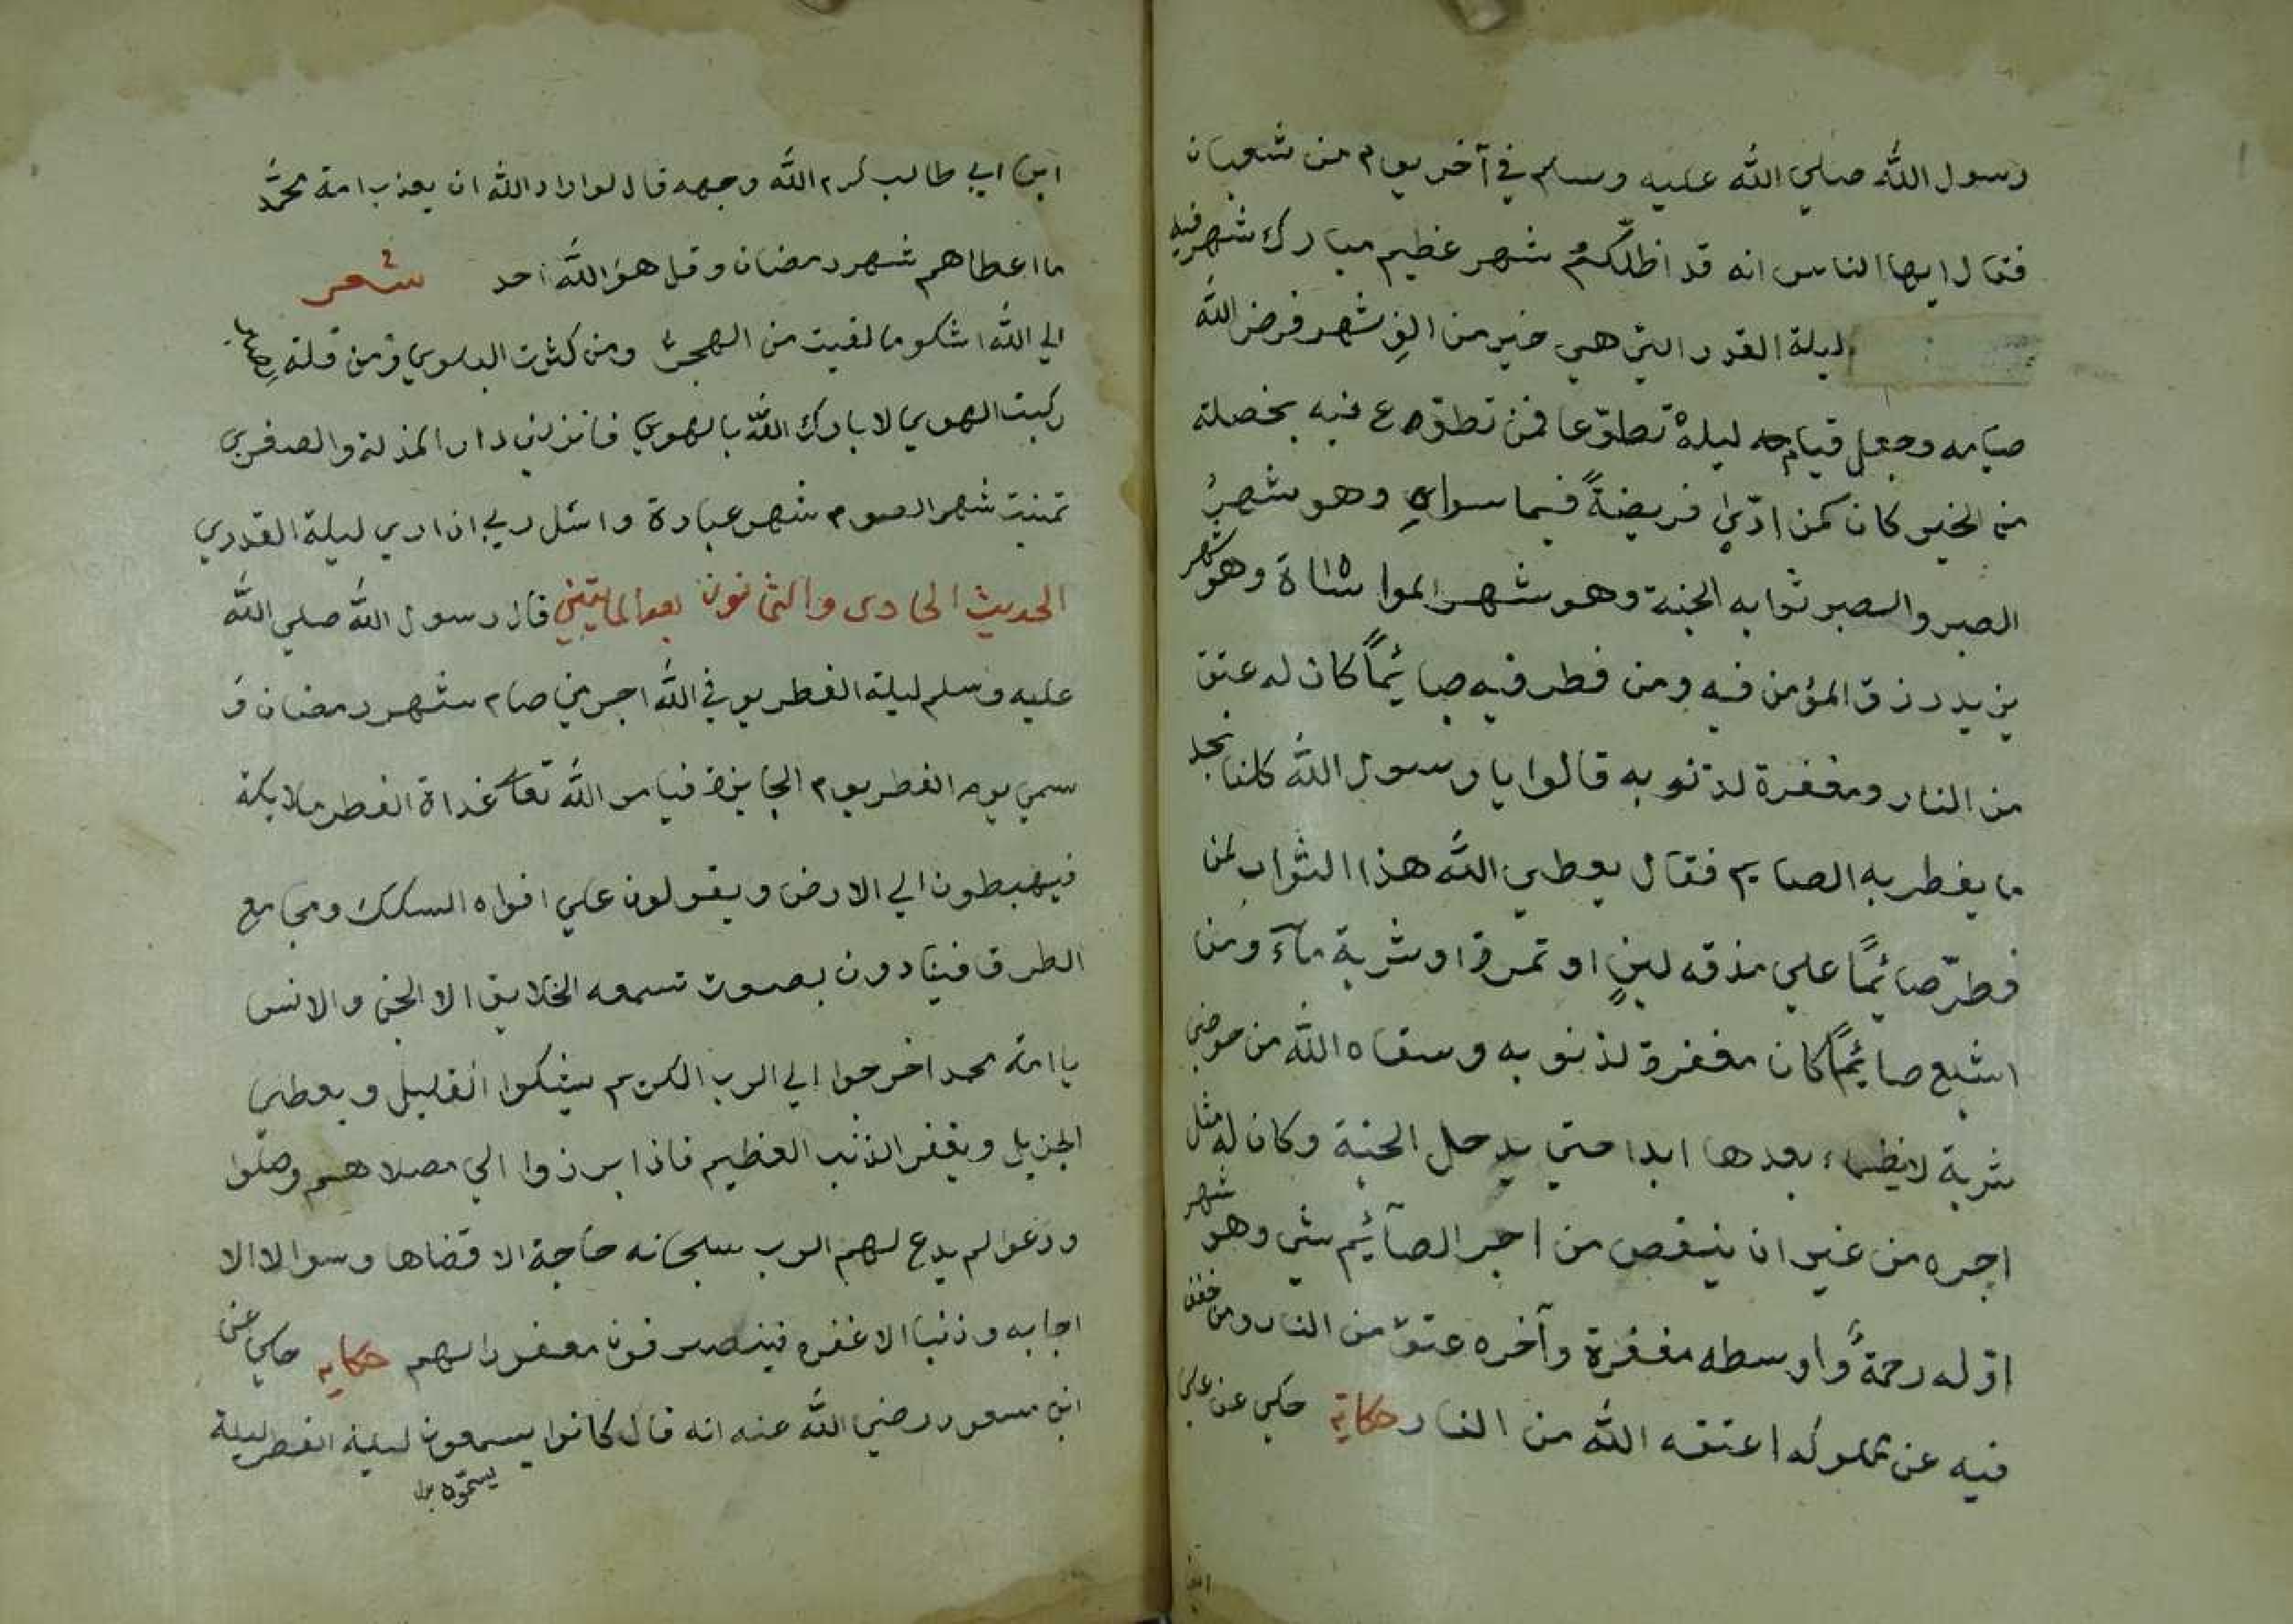 رسول الله صلي الله عليه وسلم في آخر يوم من شعبان
فقال ايها الناس انه قد اظلكم شهر عظيم مبارك شهر فيه
ليلة القدر التي هي خير من الف شهر فرض الله
صيامه وجعل قيامه ليلة تطوّعا فمن تطوّع فيه بخصلة
من الخير كان كمن ادّي فريضةً فيما سواه وهو شهر
الصبر والصبر ثوابه الجنة وهو شهر المواساة وهو شهر
يزيد رزق المؤمن فيه ومن فطر فيه صائماً كان له عتق
من النار ومغفرة لذنوبه قالوا يا رسول الله كلنا نجد
ما يفطر به الصايم فقال يعطي الله هذا الثواب لمن
فطّر صائماً علي مذقه لبنٍ او تمرة او شربة مآء ومن
اشبع صائماً كان مغفرة لذنوبه وسقاه الله من حوضي
شربة لا يظماء بعدها ابدا حتي يدخل الجنة وكان له مثل
اجره من غير ان ينقص من اجر الصآئم شي وهو شهر
اوّله رحمةٌ واوسطه مغفرة وآخره عتق من النار ومن خفف
فيه عن مملوكه اعتقه الله من النار حكاية حكي عن علي
ابن
ابن ابي طالب كرم الله وجهه قال لو اراد الله ان يعذب امة محمّد
ما اعطاهم شهر رمضان وقل هو الله احد شعر
الي الله اشكو ما لقيت من الهجر ومن كثرت البلوي ومن قلة
ركبت الهوي لا بارك الله بالهوي فانزلني دار المذلة والصغري
تمنيت شهر الصوم شهر عبادة واسئل ربي ان اري ليلة القدري
الحديث الحادي والثمانون بعد المايتين قال رسول الله صلي الله
عليه وسلم ليلة الفطر يوفي الله اجر من صام شهر رمضان و
سمي يوم الفطر يوم الجايزة فيامر الله تعا غداة الفطر ملايكة
فيهبطون الي الارض ويقولون علي افواه السكك ومجامع
الطرق فينادون بصوت تسمعه الخلايق الا الجن والانس
يا امة محمد اخرجوا الي الرب الكريم يشكوا القليل ويعطي
الجزيل ويغفر الذنب العظيم فاذا برزوا الي مصلاهم وصلّوا
ودعوا لم يدع لهم الرب سبحانه حاجة الا قضاها وسوالا الا
اجابه وذنبا الا غفره فينصرفون مغفورا لهم حكايه حكي عن
ابن مسعود رضي الله عنه انه قال كانوا يسمعون ليلة الفطر ليلة